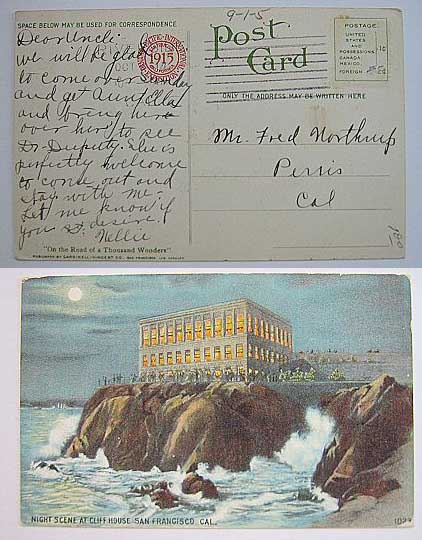 9-1-5
SPACE BELOW MAY BE USED FOR CORRESPONDENCE
Post Card
POSTAGE
UNITED
STATES
AND
POSSESSIONS
CANADA
MEXICO. 1c
FOREIGN 2c
ONLY THE ADDRESS MAY BE WRITTEN HERE
1915
Dear Uncle:
we will be glad
to come over Sunday
and get Aunt Ella
and bring her
over here to see
Dr. Deputy. She is
perfectly welcome
to come out and
stay with me.
Let me know if
you so desire.
Nellie
Mr. Fred Northrup
Perris
Cal
"On the Road of a Thousand Wonders"
PUBLISHED BY CARDINELL-VINCENT CO., SAN FRANCISCO, LOS ANGELES
NIGHT SCENE AT CLIFF HOUSE SAN FRANCISCO, CAL.